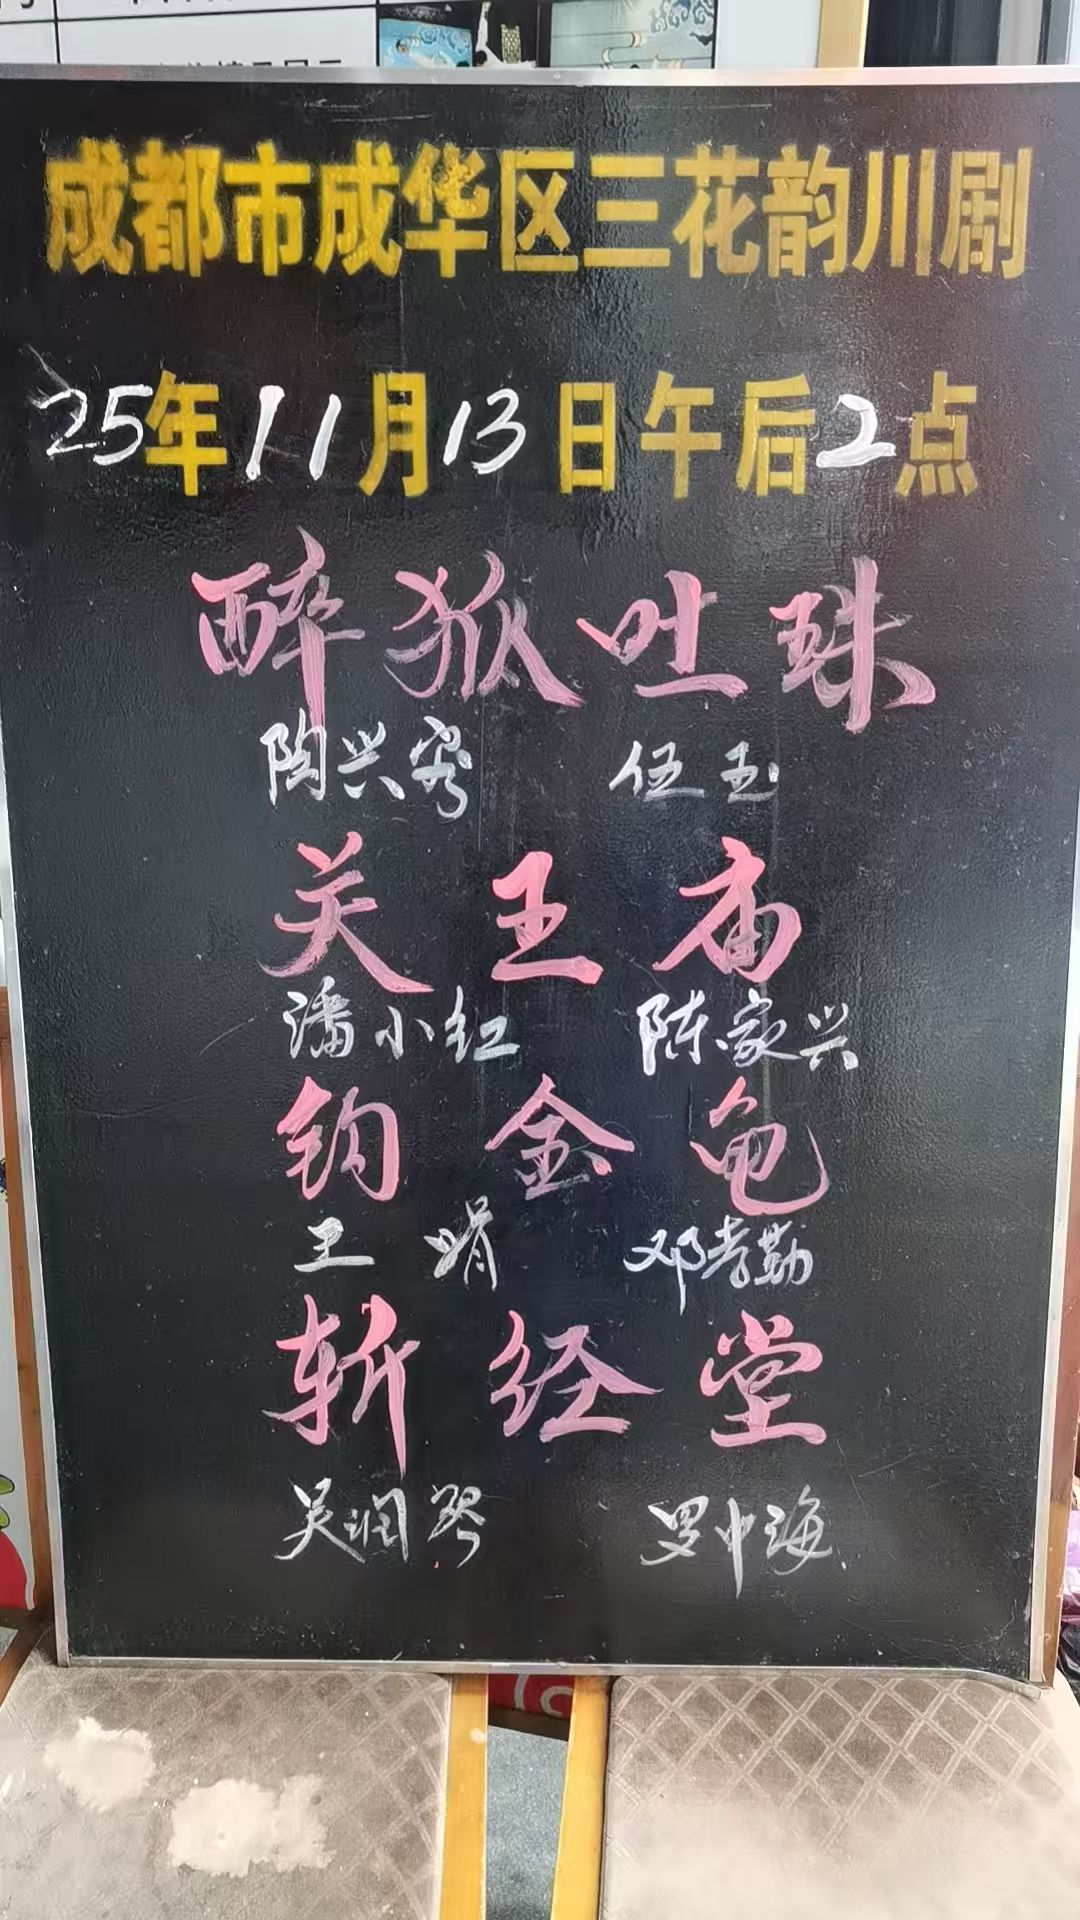 成都市成华区三花韵川剧
25年11月13日午后2点
醉狐吐珠
陶兴容 伍玉
关王庙
潘小红 陈家兴
钓金龟
王娟 邓孝勤
斩经堂
吴润琴 罗中海